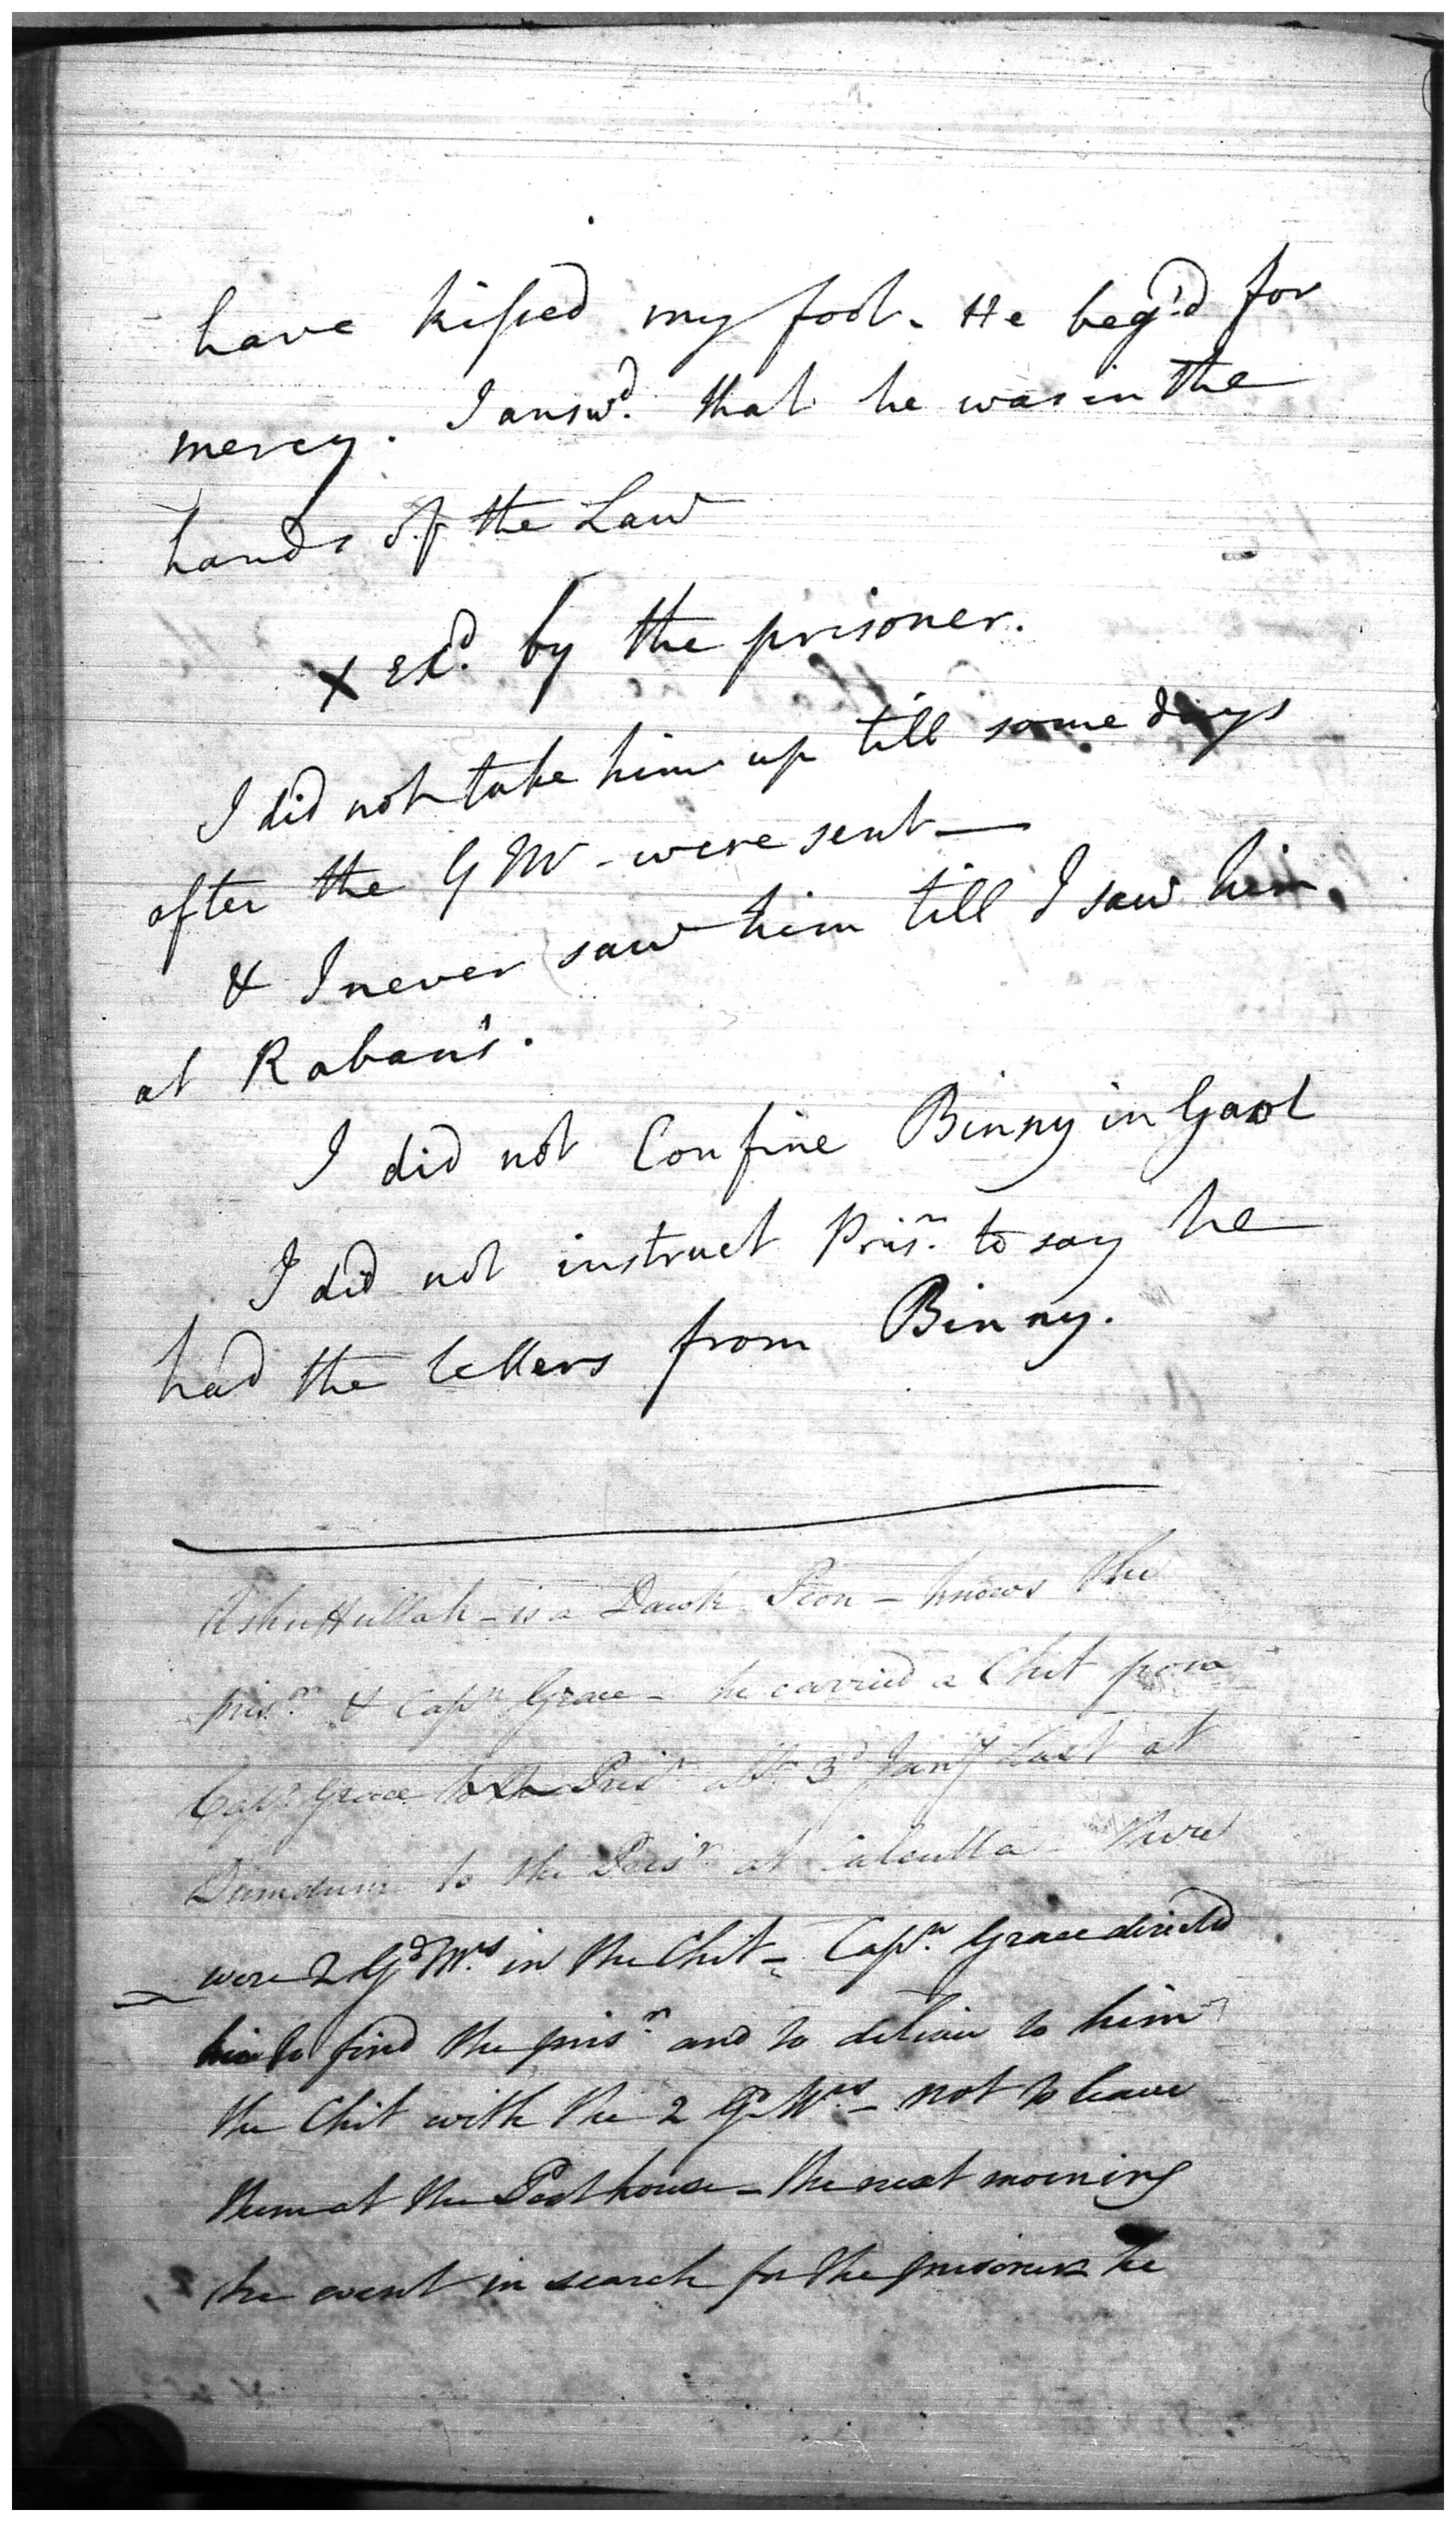 have kissed my foot. He beg'd for
mercy. I answd. that he was in the
hands of the Law
X Exd. by the prisoner.
I did not take him up till some days
after the GM - were sent —
& I never saw him till I saw him
at Raban's.
I did not Confine Binny in Gaol
I did not instruct Prisr. to say he
had the letters from Binny.
is a Dawk Peon - knows the
prisr. & Capn. Grace - he carried a Chit from
Capn. Grace to the Prisr. 3d. Jany last at
Dumdum to the Prisr. at Calcutta - there
were 2 Gd Mrs in the Chit - Capn. Grace directed
him to find the prisr. and to deliver to him
the Chit with the 2 Gd Mrs - not to leave
them at the Post house - the next morning
he went in search for the prisoner he